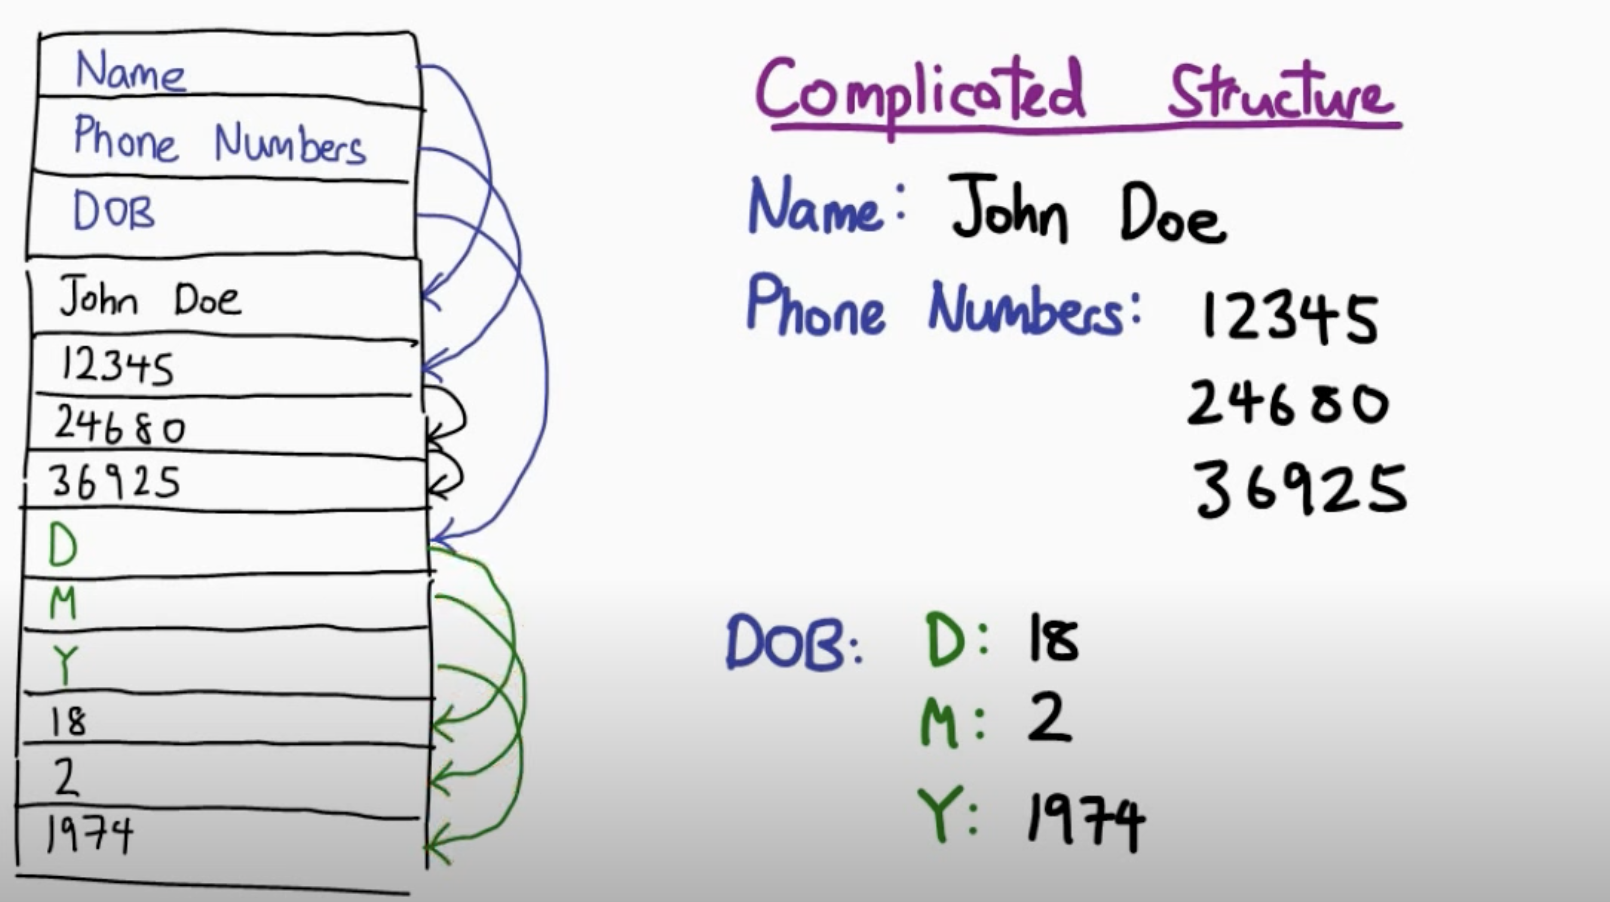 Name
Phone Numbers
DOB
John Doe
12345
24680
36925
D
M
Y
18
2
1974
Complicated Structure
Name: John Doe
Phone Numbers: 12345
24680
36925
DOB: D: 18
M: 2
Y: 1974